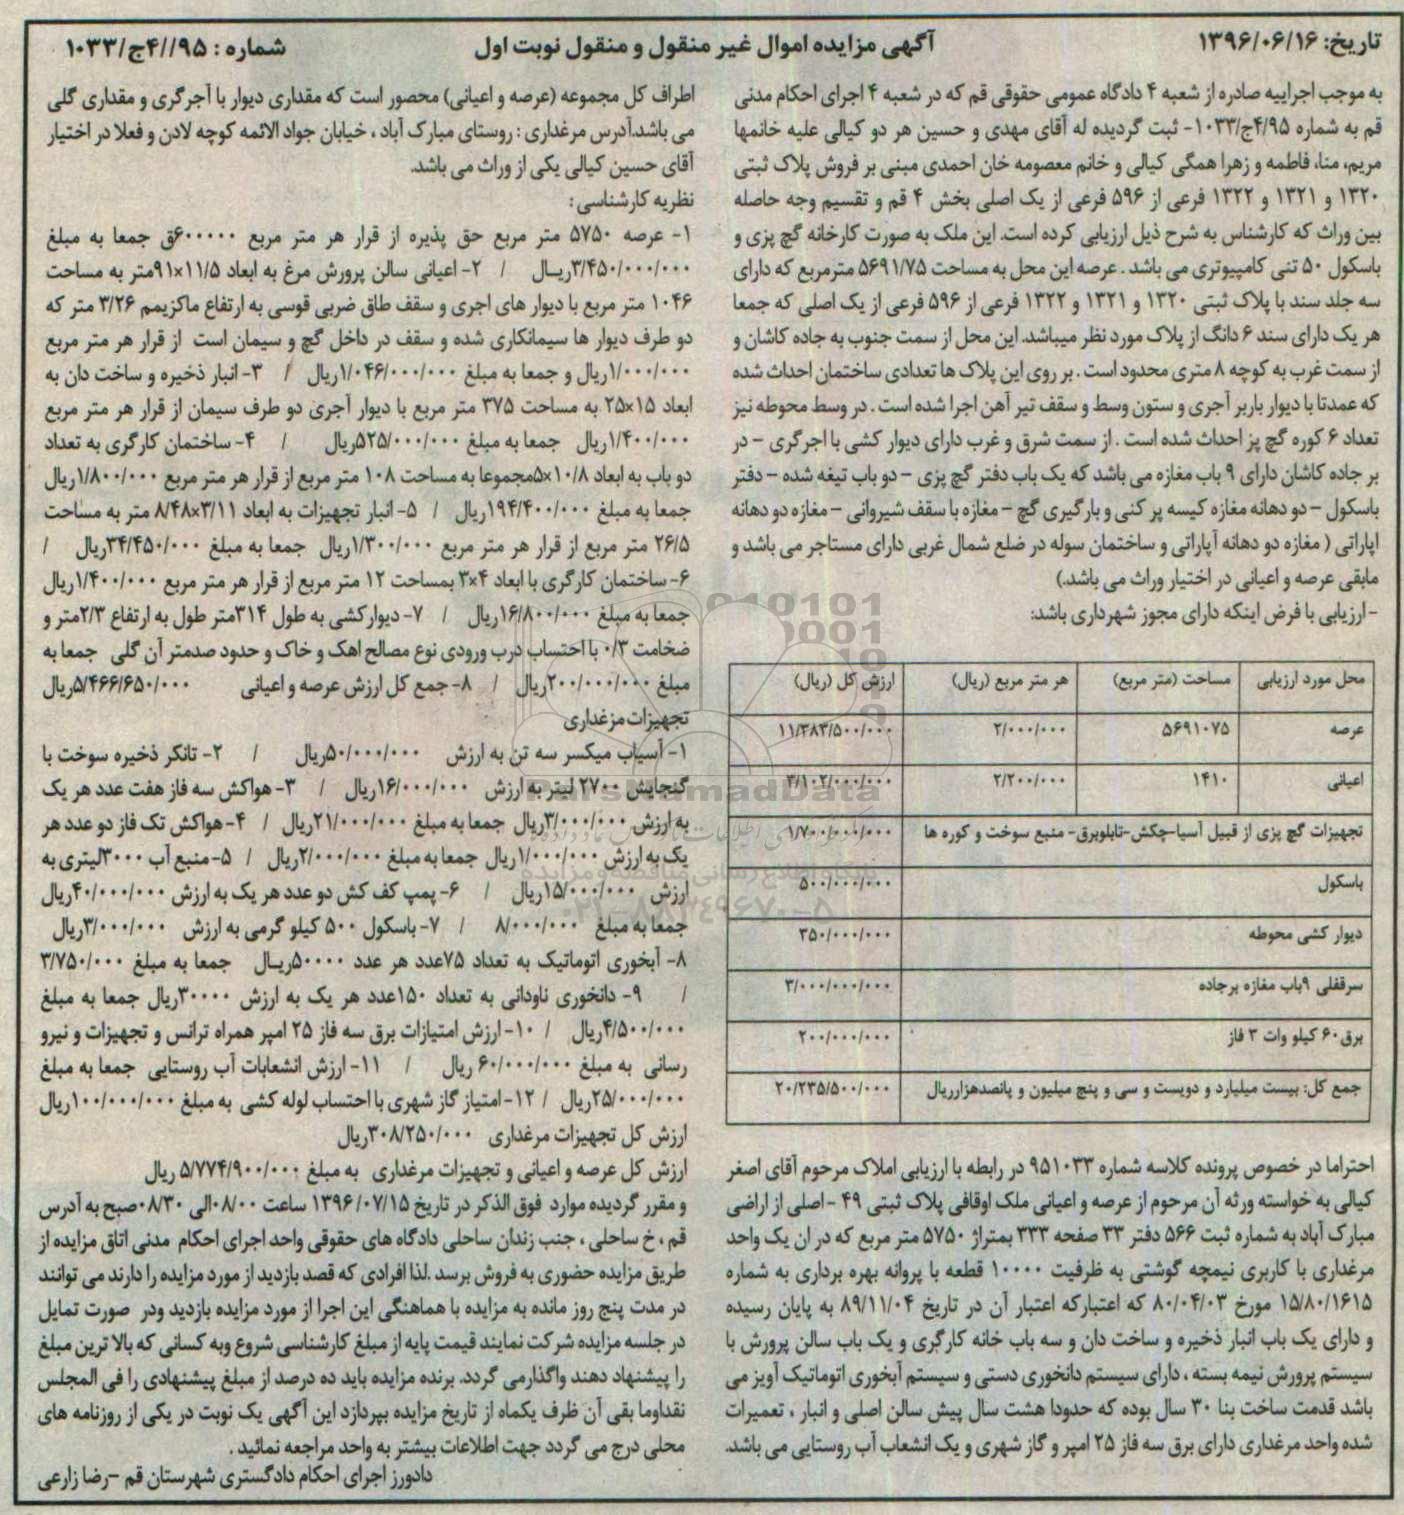 تاریخ: ۱۳۹۶/۰۶/۱۶
آگهی مزایده اموال غیر منقول و منقول نوبت اول
شماره : ۹۵//۴ج/۱۰۳۳
به موجب اجراییه صادره از شعبه ۴ دادگاه عمومی حقوقی قم که در شعبه ۴ اجرای احکام مدنی
قم به شماره ۴/۹۵ج/۱۰۳۳- ثبت گردیده له آقای مهدی و حسین هر دو کیالی علیه خانمها
مریم، منا، فاطمه و زهرا همگی کیالی و خانم معصومه خان احمدی مبنی بر فروش پلاک ثبتی
۱۳۲۰ و ۱۳۲۱ و ۱۳۲۲ فرعی از ۵۹۶ فرعی از یک اصلی بخش ۴ قم و تقسیم وجه حاصله
بین وراث که کارشناس به شرح ذیل ارزیابی کرده است. این ملک به صورت کارخانه گچ پزی و
باسکول ۵۰ تنی کامپیوتری می باشد . عرصه این محل به مساحت ۵۶۹۱/۷۵ مترمربع که دارای
سه جلد سند با پلاک ثبتی ۱۳۲۰ و ۱۳۲۱ و ۱۳۲۲ فرعی از ۵۹۶ فرعی از یک اصلی که جمعا
هر یک دارای سند ۶ دانگ از پلاک مورد نظر میباشد. این محل از سمت جنوب به جاده کاشان و
از سمت غرب به کوچه ۸ متری محدود است . بر روی این پلاک ها تعدادی ساختمان احداث شده
که عمدتا با دیوار باربر آجری و ستون وسط و سقف تیر آهن اجرا شده است . در وسط محوطه نیز
تعداد ۶ کوره گچ پز احداث شده است . از سمت شرق و غرب دارای دیوار کشی با اجرگری - در
بر جاده کاشان دارای ۹ باب مغازه می باشد که یک باب دفتر گچ پزی - دو باب تیغه شده - دفتر
باسکول - دو دهانه مغازه کیسه پر کنی و بارگیری گچ - مغازه با سقف شیروانی - مغازه دو دهانه
اپاراتی ( مغازه دو دهانه آپاراتی و ساختمان سوله در ضلع شمال غربی دارای مستاجر می باشد و
مابقی عرصه و اعیانی در اختیار وراث می باشد.)
-ارزیابی با فرض اینکه دارای مجوز شهرداری باشد:
محل مورد ارزیابی مساحت (متر مربع) هر متر مربع (ریال) ارزش کل (ریال)
عرصه ۵۶۹۱۰۷۵ ۲/۰۰۰/۰۰۰ ۱۱/۳۸۳/۵۰۰/۰۰۰
اعیانی ۱۴۱۰ ۲/۲۰۰/۰۰۰ ۳/۱۰۲/۰۰۰/۰۰۰
تجهیزات گچ پزی از قبیل آسیا-چکش-تابلوبرق- منبع سوخت و کوره ها ۱/۷۰۰/۰۰۰/۰۰۰
باسکول ۵۰۰/۰۰۰/۰۰۰
دیوار کشی محوطه ۳۵۰/۰۰۰/۰۰۰
سرقفلی ۹باب مغازه برجاده ۳/۰۰۰/۰۰۰/۰۰۰
برق۶۰ کیلو وات ۳ فاز ۲۰۰/۰۰۰/۰۰۰
جمع کل: بیست میلیارد و دویست و سی و پنج میلیون و پانصدهزارریال ۲۰/۲۳۵/۵۰۰/۰۰۰
احتراما در خصوص پرونده کلاسه شماره ۹۵۱۰۳۳ در رابطه با ارزیابی املاک مرحوم آقای اصغر
کیالی به خواسته ورثه آن مرحوم از عرصه و اعیانی ملک اوقافی پلاک ثبتی ۴۹ -اصلی از اراضی
مبارک آباد به شماره ثبت ۵۶۶ دفتر ۳۳ صفحه ۳۳۳ بمتراژ ۵۷۵۰ متر مربع که در ان یک واحد
مرغداری با کاربری نیمچه گوشتی به ظرفیت ۱۰۰۰۰ قطعه با پروانه بهره برداری به شماره
۱۵/۸۰/۱۶۱۵ مورخ ۸۰/۰۴/۰۳ که اعتبارکه اعتبار آن در تاریخ ۸۹/۱۱/۰۴ به پایان رسیده
و دارای یک باب انبار ذخیره و ساخت دان و سه باب خانه کارگری و یک باب سالن پرورش با
سیستم پرورش نیمه بسته ، دارای سیستم دانخوری دستی و سیستم آبخوری اتوماتیک آویز می
باشد قدمت ساخت بنا ۳۰ سال بوده که حدودا هشت سال پیش سالن اصلی و انبار ، تعمیرات
شده واحد مرغداری دارای برق سه فاز ۲۵ امپر و گاز شهری و یک انشعاب آب روستایی می باشد.
اطراف کل مجموعه (عرصه و اعیانی) محصور است که مقداری دیوار با آجرگری و مقداری گلی
می باشد.آدرس مرغداری : روستای مبارک آباد ، خیابان جواد الائمه کوچه لادن و فعلا در اختیار
آقای حسین کیالی یکی از وراث می باشد.
نظریه کارشناسی :
۱- عرصه ۵۷۵۰ متر مربع حق پذیره از قرار هر متر مربع ۶۰۰۰۰۰ق جمعا به مبلغ
۳/۴۵۰/۰۰۰/۰۰۰ریال / ۲- اعیانی سالن پرورش مرغ به ابعاد ۱۱/۵×۹۱متر به مساحت
۱۰۴۶ متر مربع با دیوار های اجری و سقف طاق ضربی قوسی به ارتفاع ماکزیمم ۳/۲۶ متر که
دو طرف دیوار ها سیمانکاری شده و سقف در داخل گچ و سیمان است از قرار هر متر مربع
۱/۰۰۰/۰۰۰ریال و جمعا به مبلغ ۱/۰۴۶/۰۰۰/۰۰۰ریال / ۳- انبار ذخیره و ساخت دان به
ابعاد ۱۵×۲۵ به مساحت ۳۷۵ متر مربع با دیوار آجری دو طرف سیمان از قرار هر متر مربع
۱/۴۰۰/۰۰۰ریال جمعا به مبلغ ۵۲۵/۰۰۰/۰۰۰ریال / ۴- ساختمان کارگری به تعداد
دو باب به ابعاد ۱۰/۸×۵مجموعا به مساحت ۱۰۸ متر مربع از قرار هر متر مربع ۱/۸۰۰/۰۰۰ریال
جمعا به مبلغ ۱۹۴/۴۰۰/۰۰۰ریال / ۵- انبار تجهیزات به ابعاد ۳/۱۱×۸/۴۸ متر به مساحت
۲۶/۵ متر مربع از قرار هر متر مربع ۱/۳۰۰/۰۰۰ریال جمعا به مبلغ ۳۴/۴۵۰/۰۰۰ریال /
۶- ساختمان کارگری با ابعاد ۴×۳ بمساحت ۱۲ متر مربع از قرار هر متر مربع ۱/۴۰۰/۰۰۰ریال
جمعا به مبلغ ۱۶/۸۰۰/۰۰۰ریال / ۷- دیوارکشی به طول ۳۱۴متر طول به ارتفاع ۲/۳متر و
ضخامت ۰/۳ با احتساب درب ورودی نوع مصالح اهک و خاک و حدود صدمتر آن گلی جمعا به
مبلغ ۲۰۰/۰۰۰/۰۰۰ریال / ۸- جمع کل ارزش عرصه و اعیانی ۵/۴۶۶/۶۵۰/۰۰۰ریال
تجهیزات مزغداری
۱- آسیاب میکسر سه تن به ارزش ۵۰/۰۰۰/۰۰۰ریال / ۲- تانکر ذخیره سوخت با
گنجایش ۲۷۰۰ لیتر به ارزش ۱۶/۰۰۰/۰۰۰ریال / ۳- هواکش سه فاز هفت عدد هر یک
به ارزش ۳/۰۰۰/۰۰۰ریال جمعا به مبلغ ۲۱/۰۰۰/۰۰۰ریال / ۴- هواکش تک فاز دو عدد هر
یک به ارزش ۱/۰۰۰/۰۰۰ریال جمعا به مبلغ ۲/۰۰۰/۰۰۰ریال / ۵- منبع آب ۳۰۰۰لیتری به
ارزش ۱۵/۰۰۰/۰۰۰ریال / ۶- پمپ کف کش دو عدد هر یک به ارزش ۴۰/۰۰۰/۰۰۰ریال
جمعا به مبلغ ۸/۰۰۰/۰۰۰ / ۷- باسکول ۵۰۰ کیلو گرمی به ارزش ۳/۰۰۰/۰۰۰ریال
۸- آبخوری اتوماتیک به تعداد ۷۵عدد هر عدد ۵۰۰۰۰ریال جمعا به مبلغ ۳/۷۵۰/۰۰۰
/ ۹- دانخوری ناودانی به تعداد ۱۵۰عدد هر یک به ارزش ۳۰۰۰۰ریال جمعا به مبلغ
۴/۵۰۰/۰۰۰ریال / ۱۰- ارزش امتیازات برق سه فاز ۲۵ امپر همراه ترانس و تجهیزات و نیرو
رسانی به مبلغ ۶۰/۰۰۰/۰۰۰ ریال / ۱۱- ارزش انشعابات آب روستایی جمعا به مبلغ
۲۵/۰۰۰/۰۰۰ریال / ۱۲- امتیاز گاز شهری با احتساب لوله کشی به مبلغ ۱۰۰/۰۰۰/۰۰۰ریال
ارزش کل تجهیزات مرغداری ۳۰۸/۲۵۰/۰۰۰ریال
ارزش کل عرصه و اعیانی و تجهیزات مرغداری به مبلغ ۵/۷۷۴/۹۰۰/۰۰۰ ریال
و مقرر گردیده موارد فوق الذکر در تاریخ ۱۳۹۶/۰۷/۱۵ ساعت ۰۸/۰۰الی ۰۸/۳۰صبح به آدرس
قم ، خ ساحلی ، جنب زندان ساحلی دادگاه های حقوقی واحد اجرای احکام مدنی اتاق مزایده از
طریق مزایده حضوری به فروش برسد .لذا افرادی که قصد بازدید از مورد مزایده را دارند می توانند
در مدت پنج روز مانده به مزایده با هماهنگی این اجرا از مورد مزایده بازدید ودر صورت تمایل
در جلسه مزایده شرکت نمایند قیمت پایه از مبلغ کارشناسی شروع وبه کسانی که بالا ترین مبلغ
را پیشنهاد دهند واگذارمی گردد. برنده مزایده باید ده درصد از مبلغ پیشنهادی را فی المجلس
نقداوما بقی آن ظرف یکماه از تاریخ مزایده بپردازد این آگهی یک نوبت در یکی از روزنامه های
محلی درج می گردد جهت اطلاعات بیشتر به واحد مراجعه نمائید .
دادورز اجرای احکام دادگستری شهرستان قم -رضا زارعی
ParsNamadData
پایگاه اطلاع رسانی مناقصه و مزایده
۰۲۱-۸۸۳۴۹۶۷۰-۵